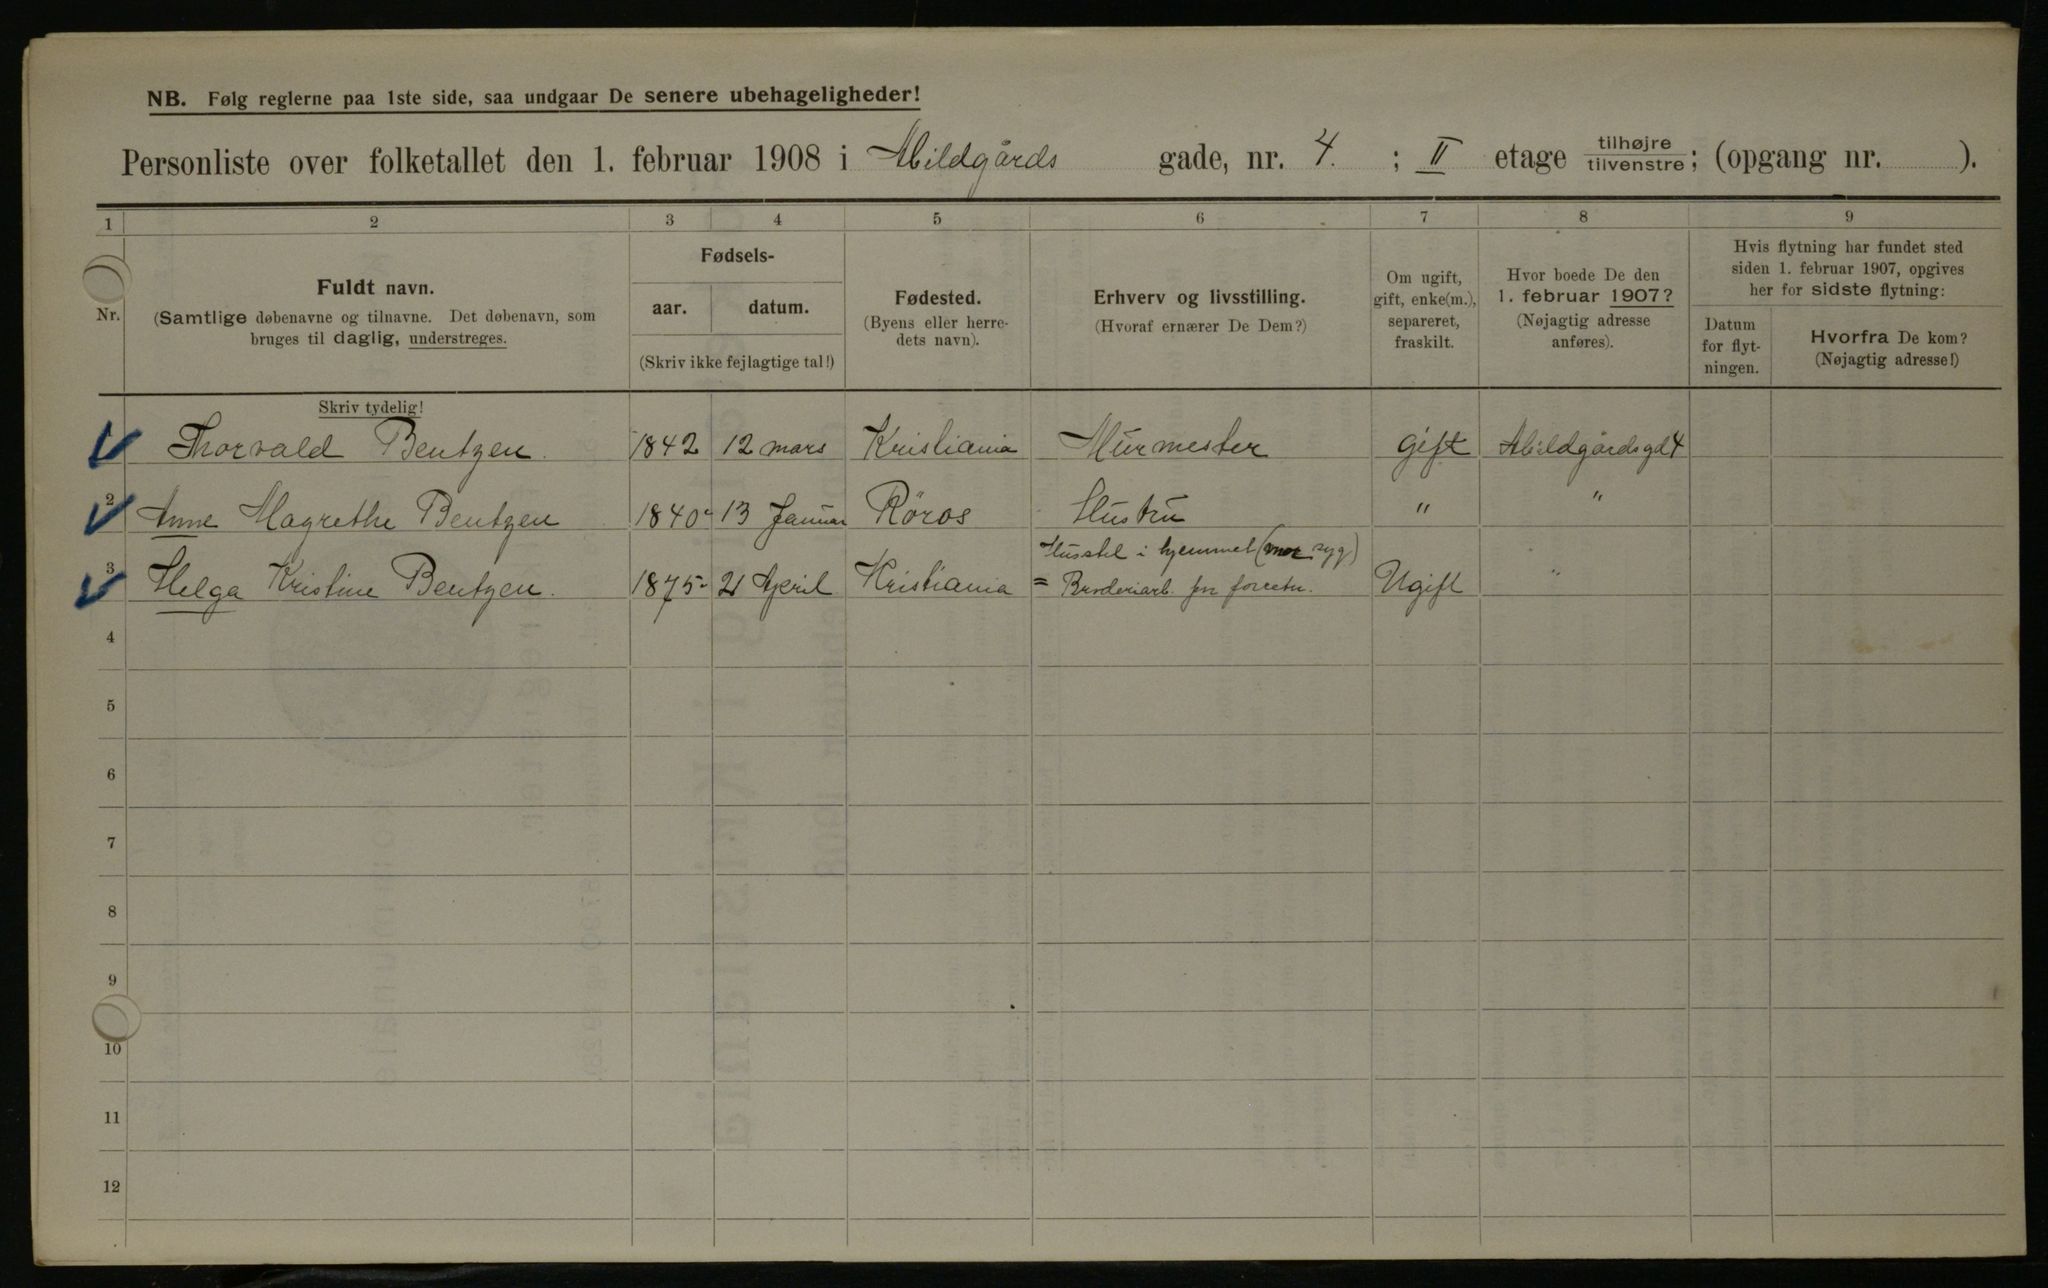 NB. Følg reglerne paa 1ste side, saa undgaar De senere ubehageligheder!
Personliste over folketallet den 1. februar 1908 i Abildgårds gade, nr. 4. ; II etage tilhøjre/tilvenstre; (opgang nr. ).
1 2 3 4 5 6 7 8 9
Nr.
Fuldt navn.
(Samtlige døbenavne og tilnavne. Det døbenavn, som
bruges til daglig, understreges.
Skriv tydelig!
Fødsels-
aar. datum.
(Skriv ikke fejlagtige tal!)
Fødested.
(Byens eller herre-
dets navn).
Erhverv og livsstilling.
(Hvoraf ernærer De Dem?)
Om ugift,
gift, enke(m.),
separeret,
fraskilt.
Hvor boede De den
1. februar 1907?
(Nøjagtig adresse
anføres).
Hvis flytning har fundet sted
siden 1. februar 1907, opgives
her for sidste flytning:
Datum
for flyt-
ningen.
Hvorfra De kom?
(Nøjagtig adresse!)
Thorvald Bentzen. 1842 12 mars Kristiania Murmester gift Abildgårdsgd 4
2 Anne Magrethe Bentzen 1840 13 Januar Röros Hustru " "
Husstel i hjemmet (mor syg)
3 Helga Kristine Bentzen. 1875 21 April Kristiania = Broderiarb. for forretn. Ugift "
4
5
6
7
8
9
10
11
12